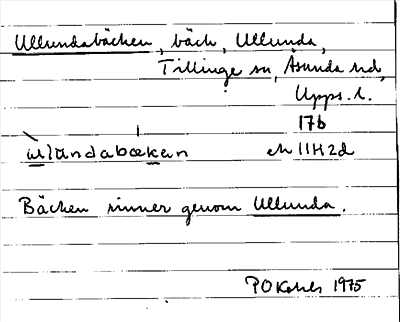 Ullundabäcken, bäck, Ullunda,
Tillinge sn, Åsunda hd,
Upps. l.
17b
ulundabækan ek 11H2d
Bäcken rinner genom Ullunda.
1975